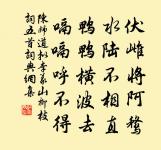 伏雌將阿鶩
水陸不相直
鴨鴨橫波去
喌喌呼不得
陳師道擬李義山柳枝
詞五首詞典網集